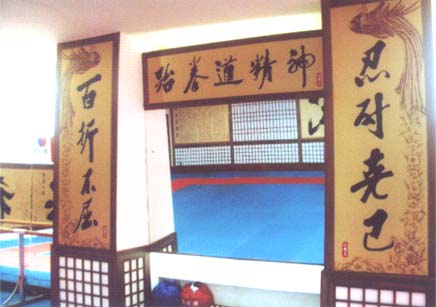 跆拳道精神
百折不屈
忍耐克己